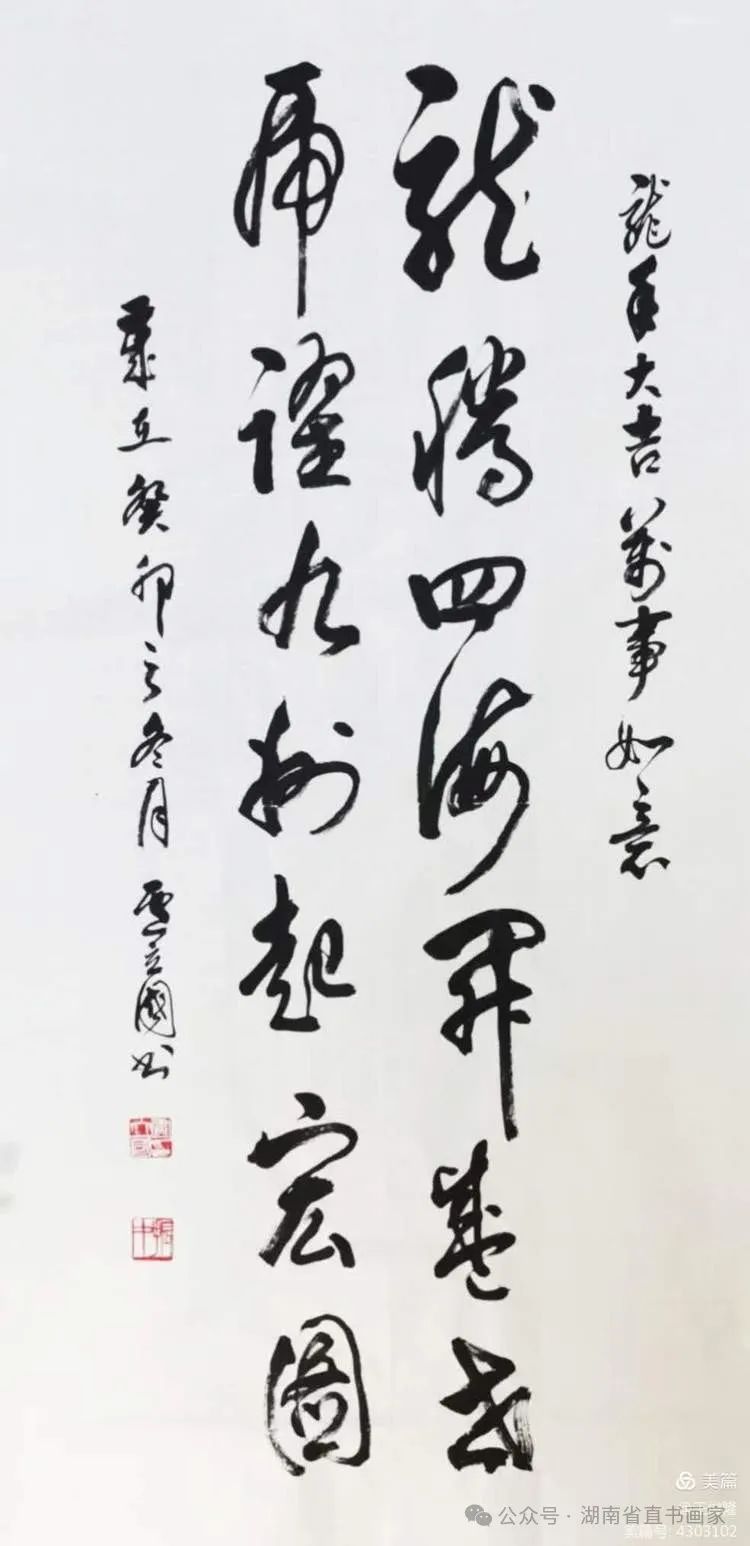 龍年大吉萬事如意
龍騰四海開盛世
虎躍九州起宏圖
歲在癸卯之冬月 立國书
美篇
公众号 · 湖南省直书画家
美篇号: 4303102